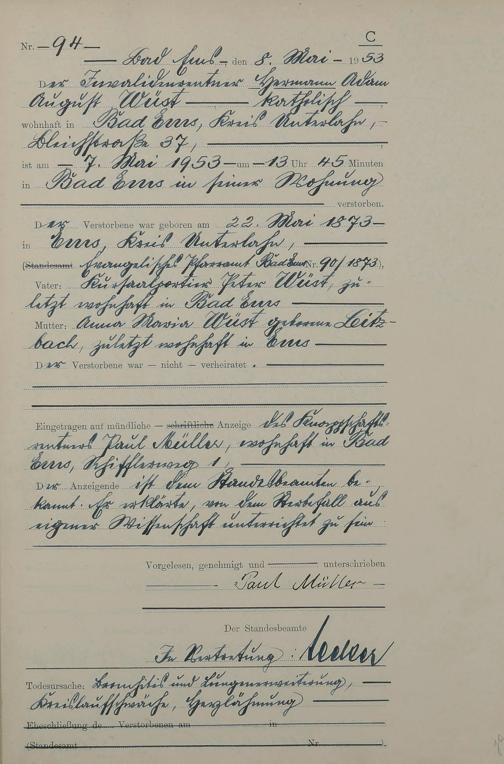 C
Nr. — 94 —
— Bad Ems —, den 8. Mai — 1953
Der Invalidenrentner Hermann Adam
August Wüst — katholisch —,
wohnhaft in Bad Ems, Kreis Unterlahn, —
Bleichstraße 37, —
ist am — 7. Mai 1953 — um — 13 Uhr 45 Minuten
in Bad Ems in seiner Wohnung
— verstorben.
Der Verstorbene war geboren am 22. Mai 1873 —
in Ems, Kreis Unterlahn, —
(Standesamt Evangelisches Pfarramt Bad Ems Nr. 90/1873),
Vater: Kursaalportier Peter Wüst, zu-
letzt wohnhaft in Bad Ems —
Mutter: Anna Maria Wüst geborene Leitz-
bach, zuletzt wohnhaft in Ems —
Der Verstorbene war — nicht — verheiratet. —
Eingetragen auf mündliche — schriftliche Anzeige des Knappschafts-
rentners Paul Müller, wohnhaft in Bad
Ems, Schifflerweg 1, —
Der Anzeigende ist dem Standesbeamten be-
kannt. Er erklärte, von dem Sterbefall aus
eigener Wissenschaft unterrichtet zu sein
Vorgelesen, genehmigt und — unterschrieben
— Paul Müller —
Der Standesbeamte
In Vertretung:
Todesursache: Bronchitis und Lungenerweiterung, —
Kreislaufschwäche, Herzlähmung —
Eheschließung de Verstorbenen am in
(Standesamt Nr. ).